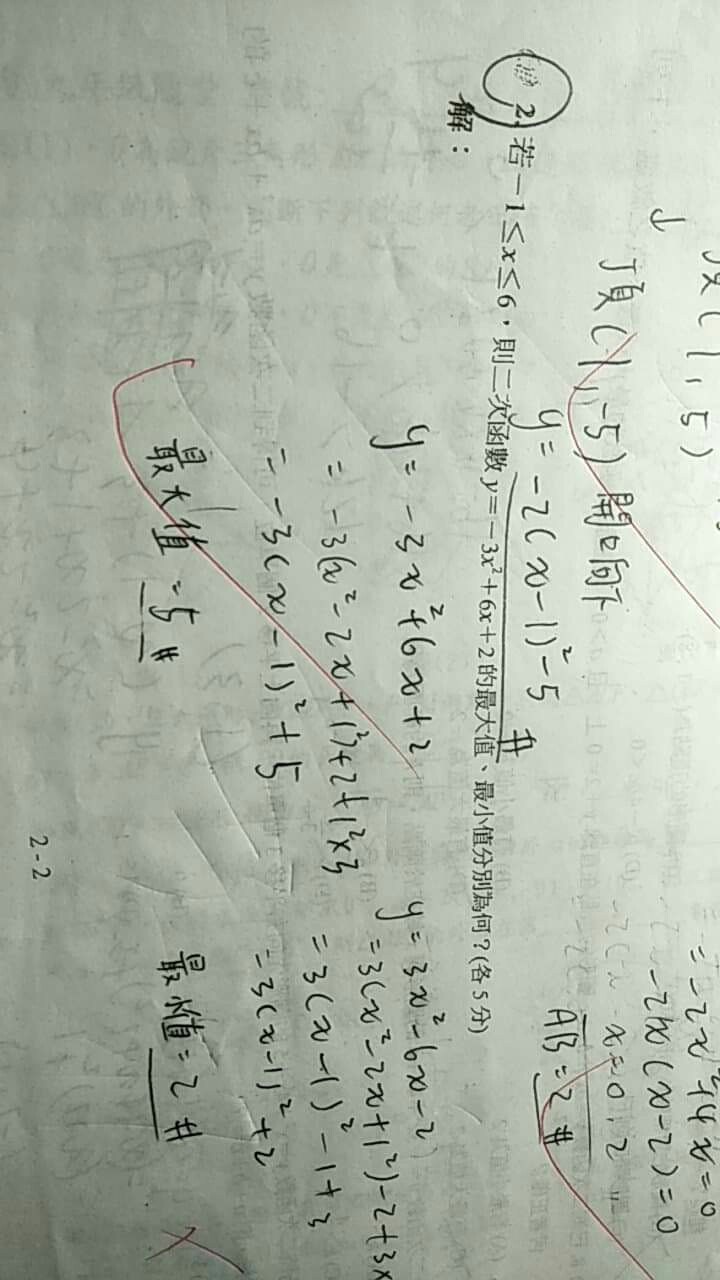 頂(1,5)
=-2x²+4x=0
頂(1,-5) 開口向下
-2x(x-2)=0
x=0,2
y=-2(x-1)²-5 #
AB=2 #
2. 若-1≤x≤6,則二次函數y=-3x²+6x+2的最大值、最小值分別為何?(各5分)
解:
y=-3x²+6x+2
=-3(x²-2x+1²)+2+1²x3
=-3(x-1)²+5
最大值=5 #
y=3x²-6x-2
=3(x²-2x+1²)-2+3x
=3(x-1)²-1+3
=3(x-1)²+2
最小值=2 #
2-2